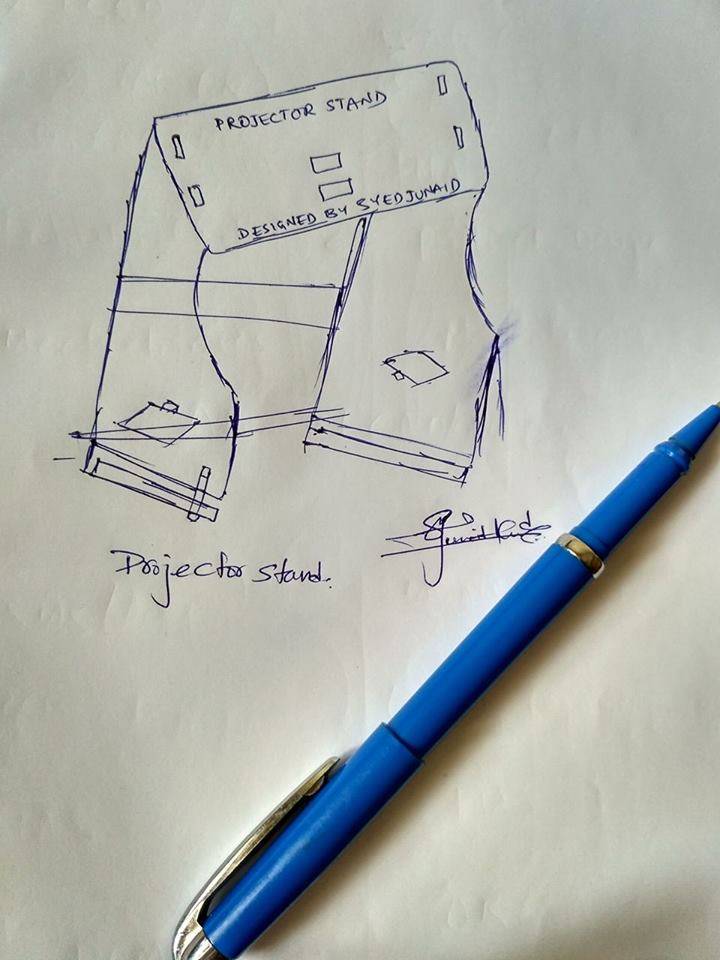 PROJECTOR STAND
DESIGNED BY SYEDJUNAID
Projector stand.